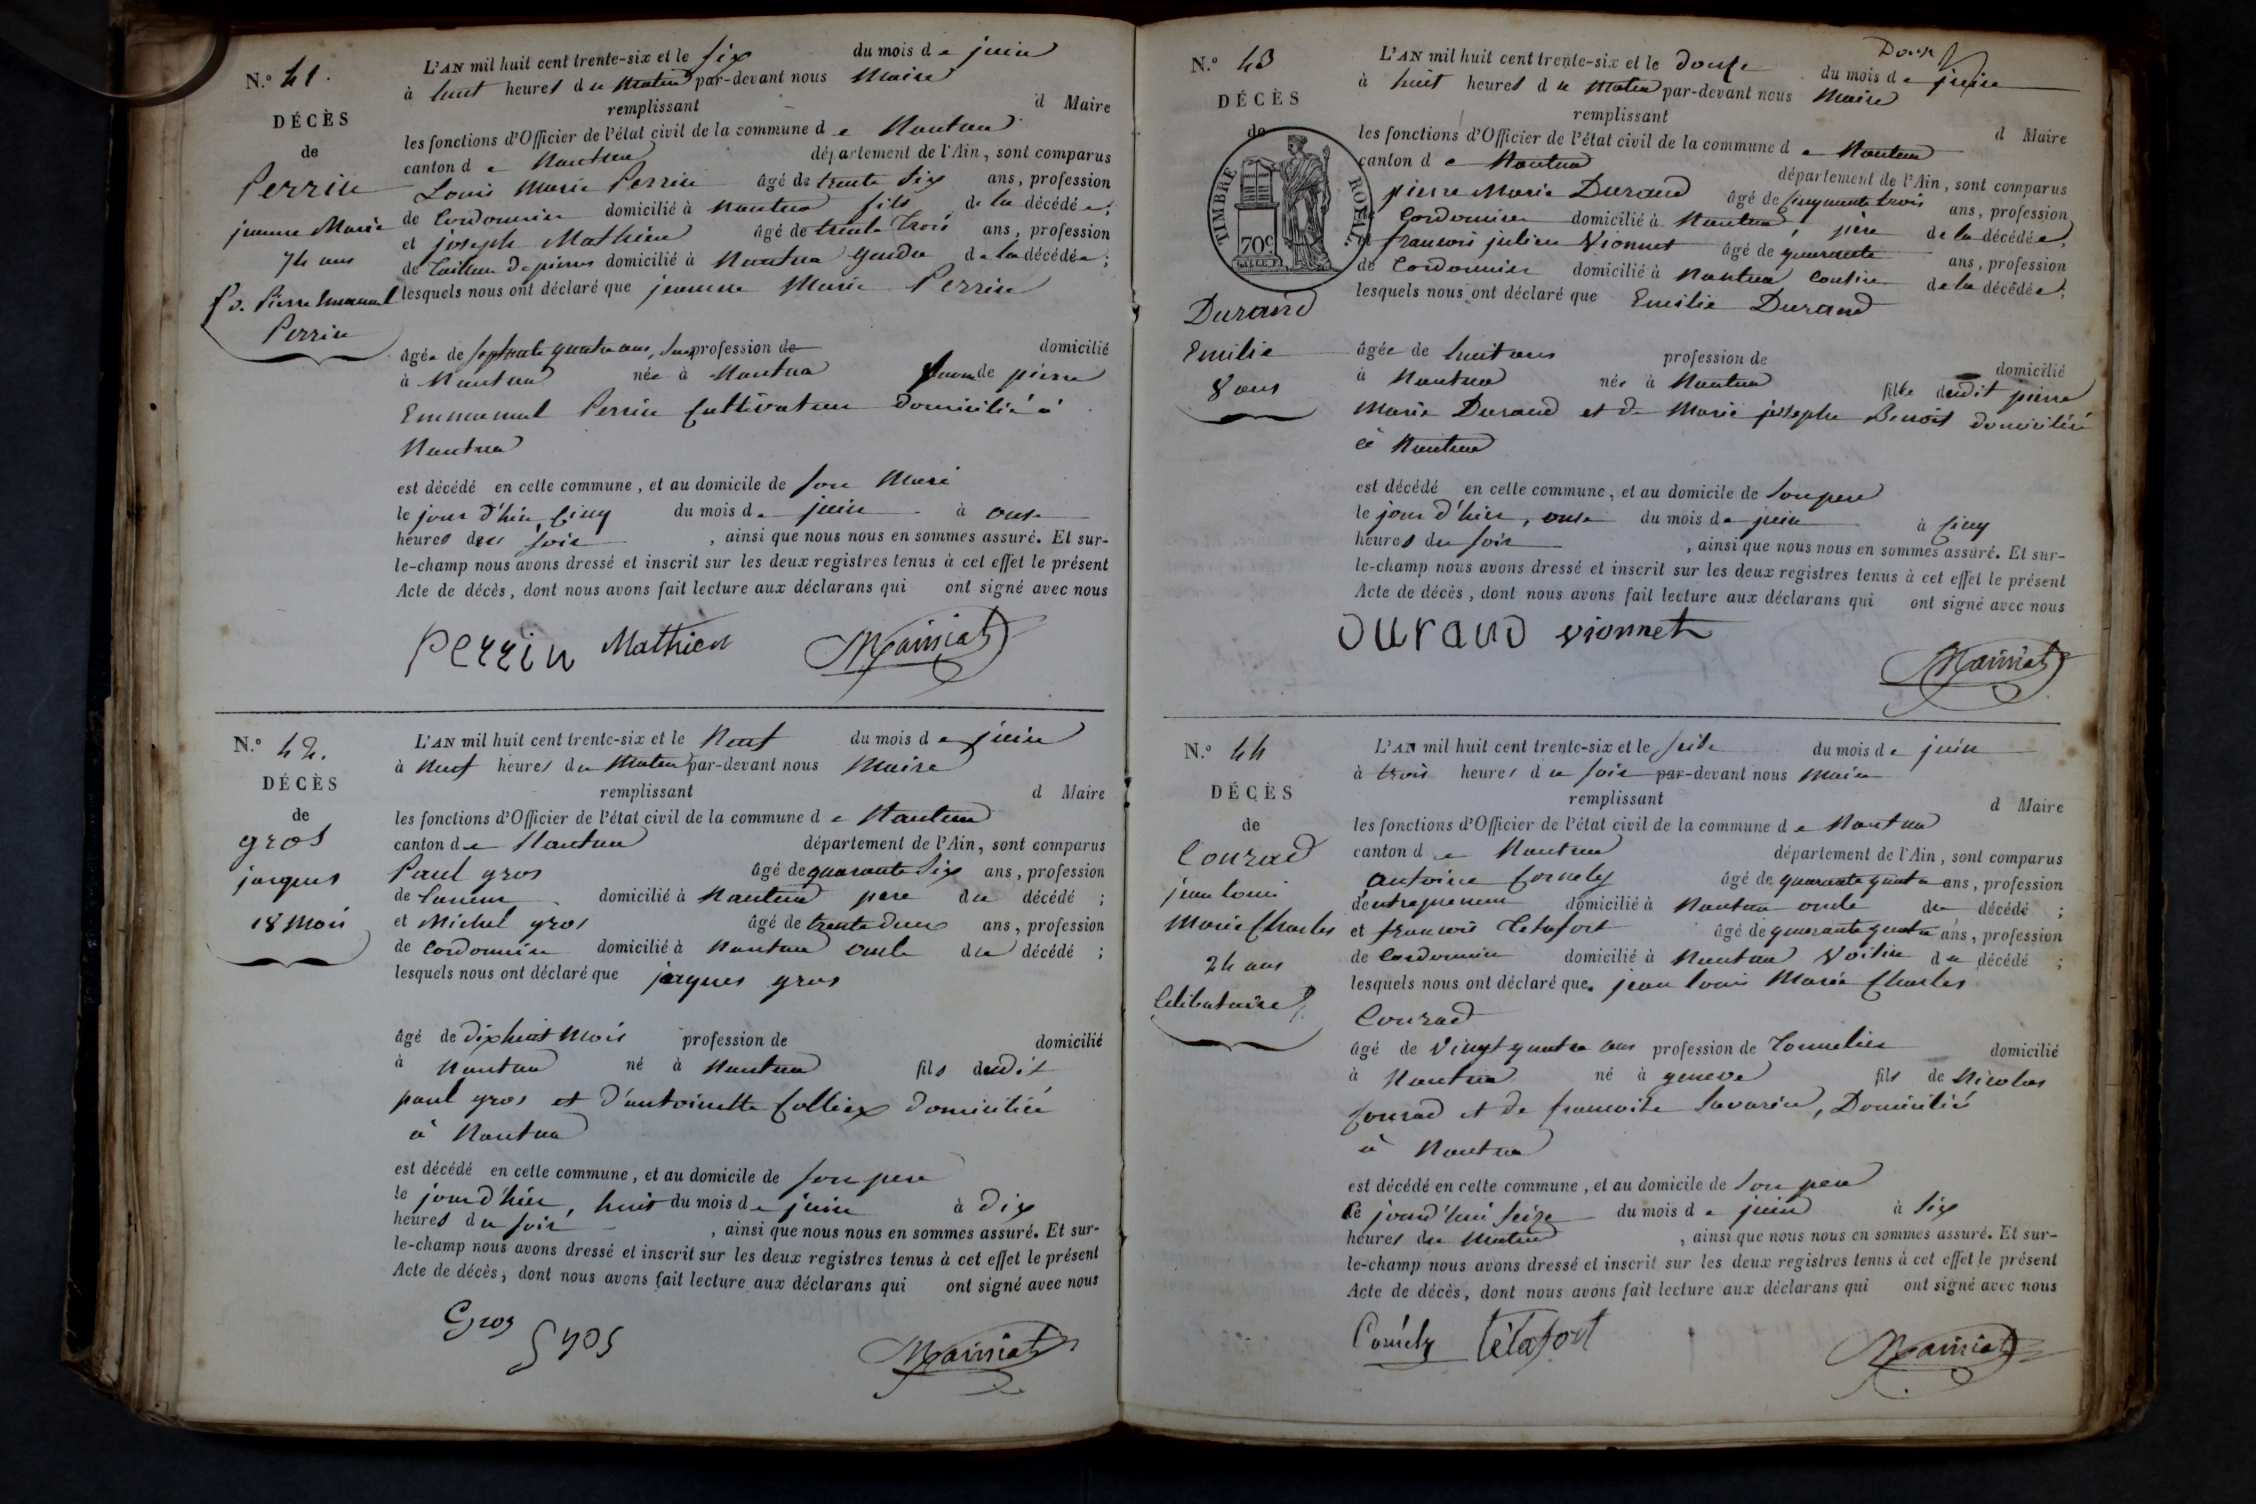 N.° 41.
DÉCÈS
de
Perrin
jeanne Marie
74 ans
f.e Pierre Emanuel
Perrin
L'AN mil huit cent trente-six et le six du mois de juin
à huit heures du matin par-devant nous Maire
remplissant d Maire
les fonctions d'Officier de l'état civil de la commune de Nantua
canton de Nantua département de l'Ain, sont comparus
Louis Marie Perrin âgé de trente six ans, profession
de Cordonnier domicilié à Nantua fils de la décédée;
et joseph Mathieu âgé de trente trois ans, profession
de Tailleur de pierres domicilié à Nantua gendre de la décédée;
lesquels nous ont déclaré que jeanne Marie Perrin
âgée de septante quatre ans, sans profession de domicilié
à Nantua née à Nantua femme de pierre
Emmanuel Perrin Cultivateur domicilié à
Nantua
est décédé en cette commune, et au domicile de son Mari
le jour d'hier cinq du mois de juin à onze
heures du soir, ainsi que nous nous en sommes assuré. Et sur-
le-champ nous avons dressé et inscrit sur les deux registres tenus à cet effet le présent
Acte de décès, dont nous avons fait lecture aux déclarans qui ont signé avec nous
Perrin Mathieu Mainiat
N.° 42.
DÉCÈS
de
gros
jacques
18 Mois
L'AN mil huit cent trente-six et le Neuf du mois de juin
à Neuf heures du Matin par-devant nous Maire
remplissant d Maire
les fonctions d'Officier de l'état civil de la commune de Nantua
canton de Nantua département de l'Ain, sont comparus
Paul gros âgé de quarante six ans, profession
de Tanneur domicilié à Nantua pere du décédé;
et Michel gros âgé de trente deux ans, profession
de Cordonnier domicilié à Nantua oncle du décédé;
lesquels nous ont déclaré que jacques gros
âgé de dix huit Mois profession de domicilié
à Nantua né à Nantua fils dudit
paul gros et d'antoinette Colliex domiciliés
à Nantua
est décédé en cette commune, et au domicile de son pere
le jour d'hier, huit du mois de juin à dix
heures du soir, ainsi que nous nous en sommes assuré. Et sur-
le-champ nous avons dressé et inscrit sur les deux registres tenus à cet effet le présent
Acte de décès, dont nous avons fait lecture aux déclarans qui ont signé avec nous
Gros gros Mainiat
N.° 43
DÉCÈS
de
TIMBRE ROYAL
70c
Durand
Emilie
8 ans
L'AN mil huit cent trente-six et le douze du mois de juin
à huit heures du matin par-devant nous Maire
remplissant d Maire
les fonctions d'Officier de l'état civil de la commune de Nantua
canton de Nantua département de l'Ain, sont comparus
pierre Marie Durand âgé de cinquante trois ans, profession
de Cordonnier domicilié à Nantua, père de la décédée;
et francois julien Vionnet âgé de quarante ans, profession
de Cordonnier domicilié à Nantua Cousin de la décédée;
lesquels nous ont déclaré que Emilie Durand
âgée de huit ans profession de domicilié
à Nantua née à Nantua fille dudit pierre
Marie Durand et de Marie josephe Benoit domiciliés
à Nantua
est décédé en cette commune, et au domicile de son pere
le jour d'hier, onze du mois de juin à cinq
heures du soir, ainsi que nous nous en sommes assuré. Et sur-
le-champ nous avons dressé et inscrit sur les deux registres tenus à cet effet le présent
Acte de décès, dont nous avons fait lecture aux déclarans qui ont signé avec nous
Durand vionnet Mainiat
N.° 44
DÉCÈS
de
Conrad
jean Louis
Marie Charles
24 ans
Celibataire
L'AN mil huit cent trente-six et le seize du mois de juin
à trois heures du soir par-devant nous Maire
remplissant d Maire
les fonctions d'Officier de l'état civil de la commune de Nantua
canton de Nantua département de l'Ain, sont comparus
antoine Cornely âgé de quarante quatre ans, profession
d'entrepreneur domicilié à Nantua oncle du décédé;
et francois Tétafort âgé de quarante quatre ans, profession
de Cordonnier domicilié à Nantua Voisin du décédé;
lesquels nous ont déclaré que jean Louis Marie Charles
Conrad
âgé de Vingt quatre ans profession de Tonnelier domicilié
à Nantua né à geneve fils de Nicolas
Conrad et de francoise Savarin, Domiciliés
à Nantua
est décédé en cette commune, et au domicile de son pere
Ce jourd'hui seize du mois de juin à six
heures du Matin, ainsi que nous nous en sommes assuré. Et sur-
le-champ nous avons dressé et inscrit sur les deux registres tenus à cet effet le présent
Acte de décès, dont nous avons fait lecture aux déclarans qui ont signé avec nous
Cornely tétafort Mainiat